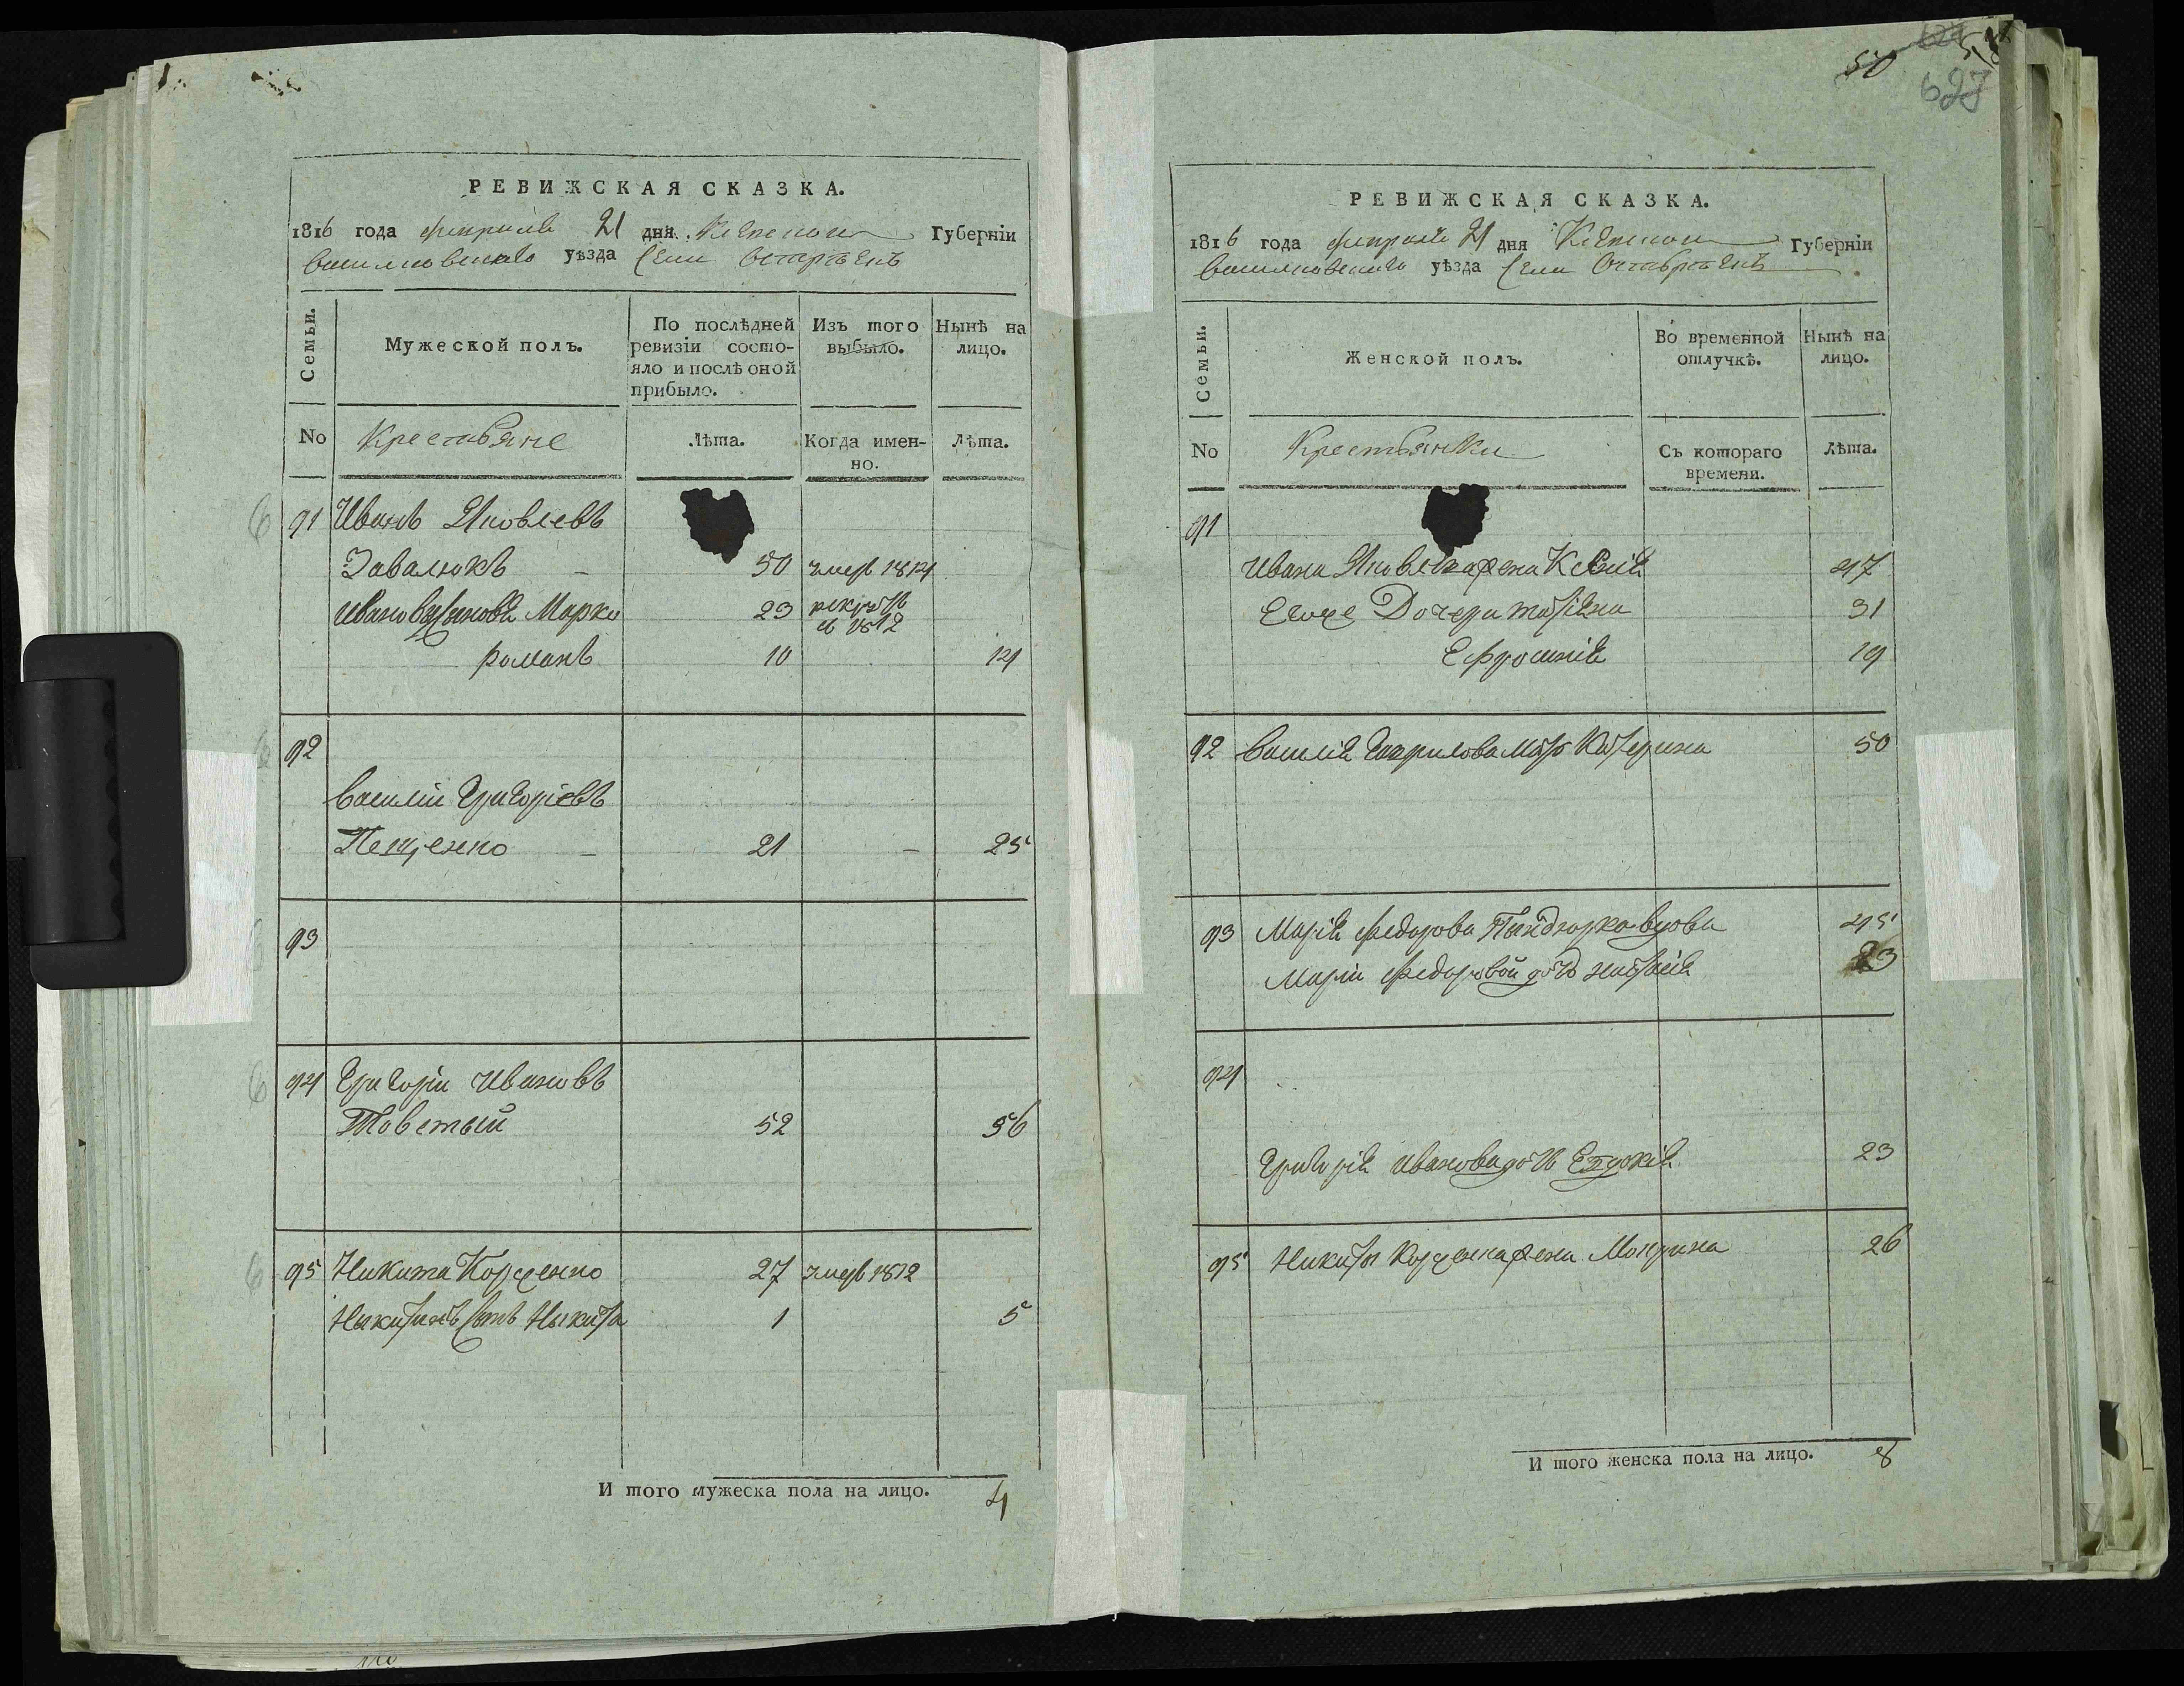 РЕВИЖСКАЯ СКАЗКА.
1816 года февраля 21 дня Киевской Губерніи
Васильковскаго уѣзда Села
Семьи.
Мужеской полъ.
По послѣдней ревизіи состо-
яло и послѣ оной
прибыло.
Изъ того
выбыло.
Нынѣ на
лицо.
No
Крестьяне
Лѣта.
Когда имен-
но.
Лѣта.
91 Иванъ Яковлевъ
Завалюкъ – 50 умер 1814
Ивановы сыновья Марко 23 рекрут
в 1812
романъ 10 14
92
василій Григоріевъ
Пещенко – 21 – 25
93
94 Григорій Ивановъ
Товстый 52 56
95 Никита Корченко 27 умер 1812
Никитинъ сынъ Никита 1 5
И того мужеска пола на лицо. 4
50
627
РЕВИЖСКАЯ СКАЗКА.
1816 года февраля 21 дня Киевской Губерніи
Васильковскаго уѣзда Села
Семьи.
Женской полъ.
Во временной
отлучкѣ.
Нынѣ на
лицо.
No
Крестьянки
Съ котораго
времени.
Лѣта.
91
Ивана Яковлева жена Ксенія 47
Егоже Дочери татіяна 31
Ефросинія 19
92 василія Гаврилова мать Катерина 50
93 Марія Федорова вдова 45
Маріи Федоровой дочь настасія 23
94
Григорія Иванова дочь Евдокія 23
95 Никиты Корченка жена Мокрина 26
И того женска пола на лицо. 8